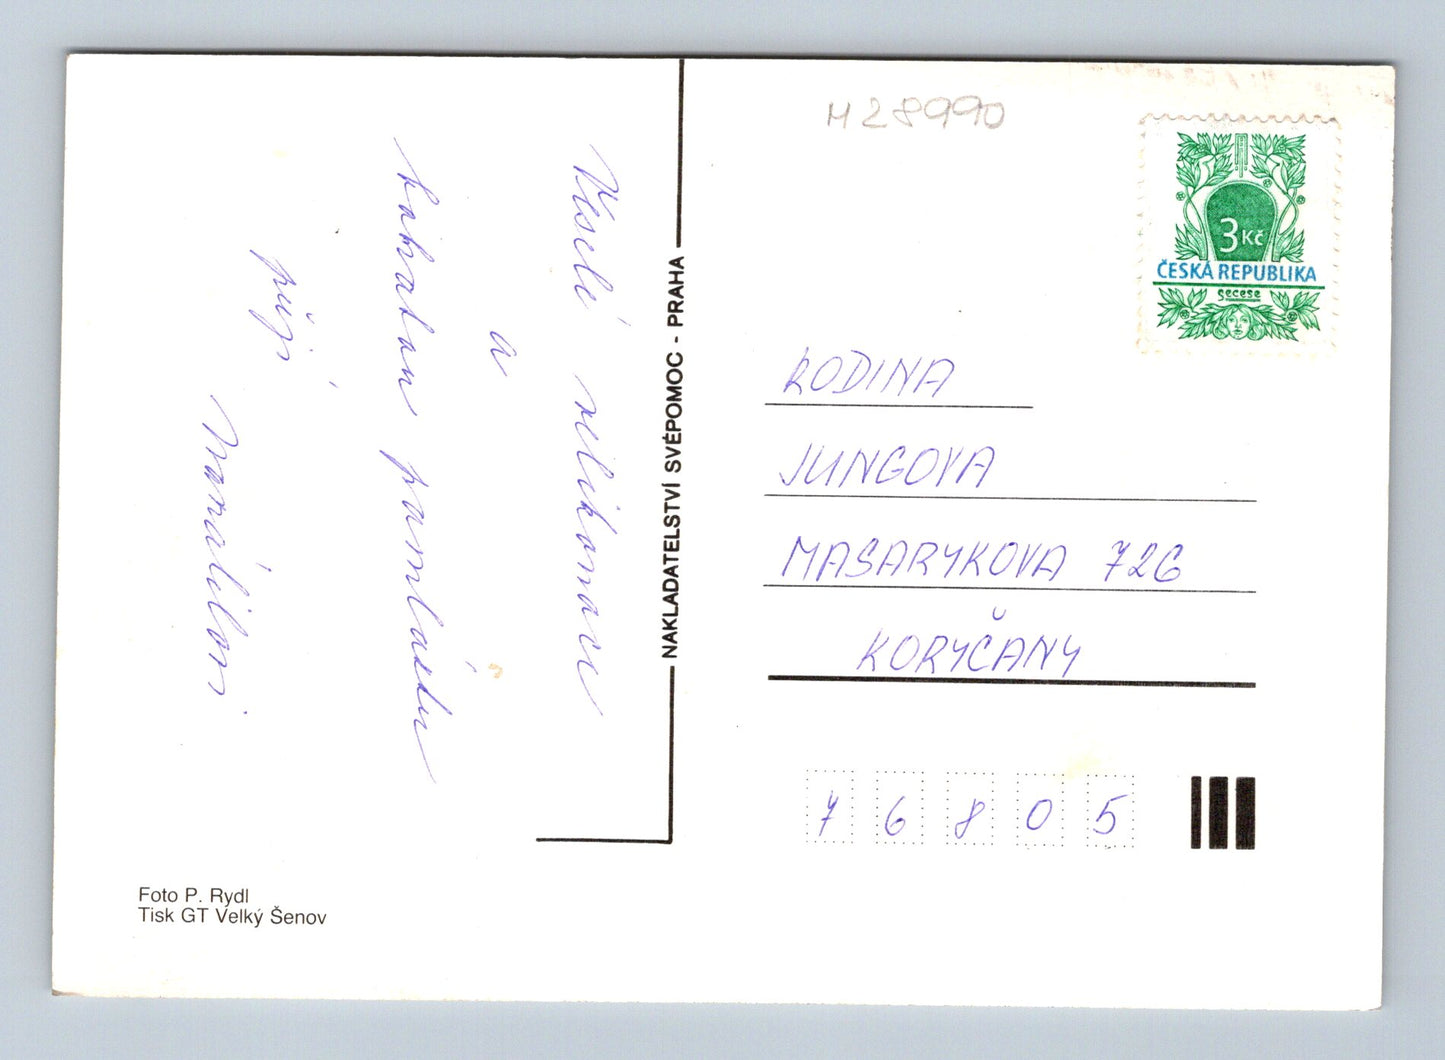 Veselé velikonoce
a
bohatou pomlázku
přejí
Foto P. Rydl
Tisk GT Velký Šenov
NAKLADATELSTVÍ SVÉPOMOC - PRAHA
M 28990
3 Kč
ČESKÁ REPUBLIKA
Secese
RODINA
JUNGOVA
MASARYKOVA 726
KORYČANY
7 6 8 0 5